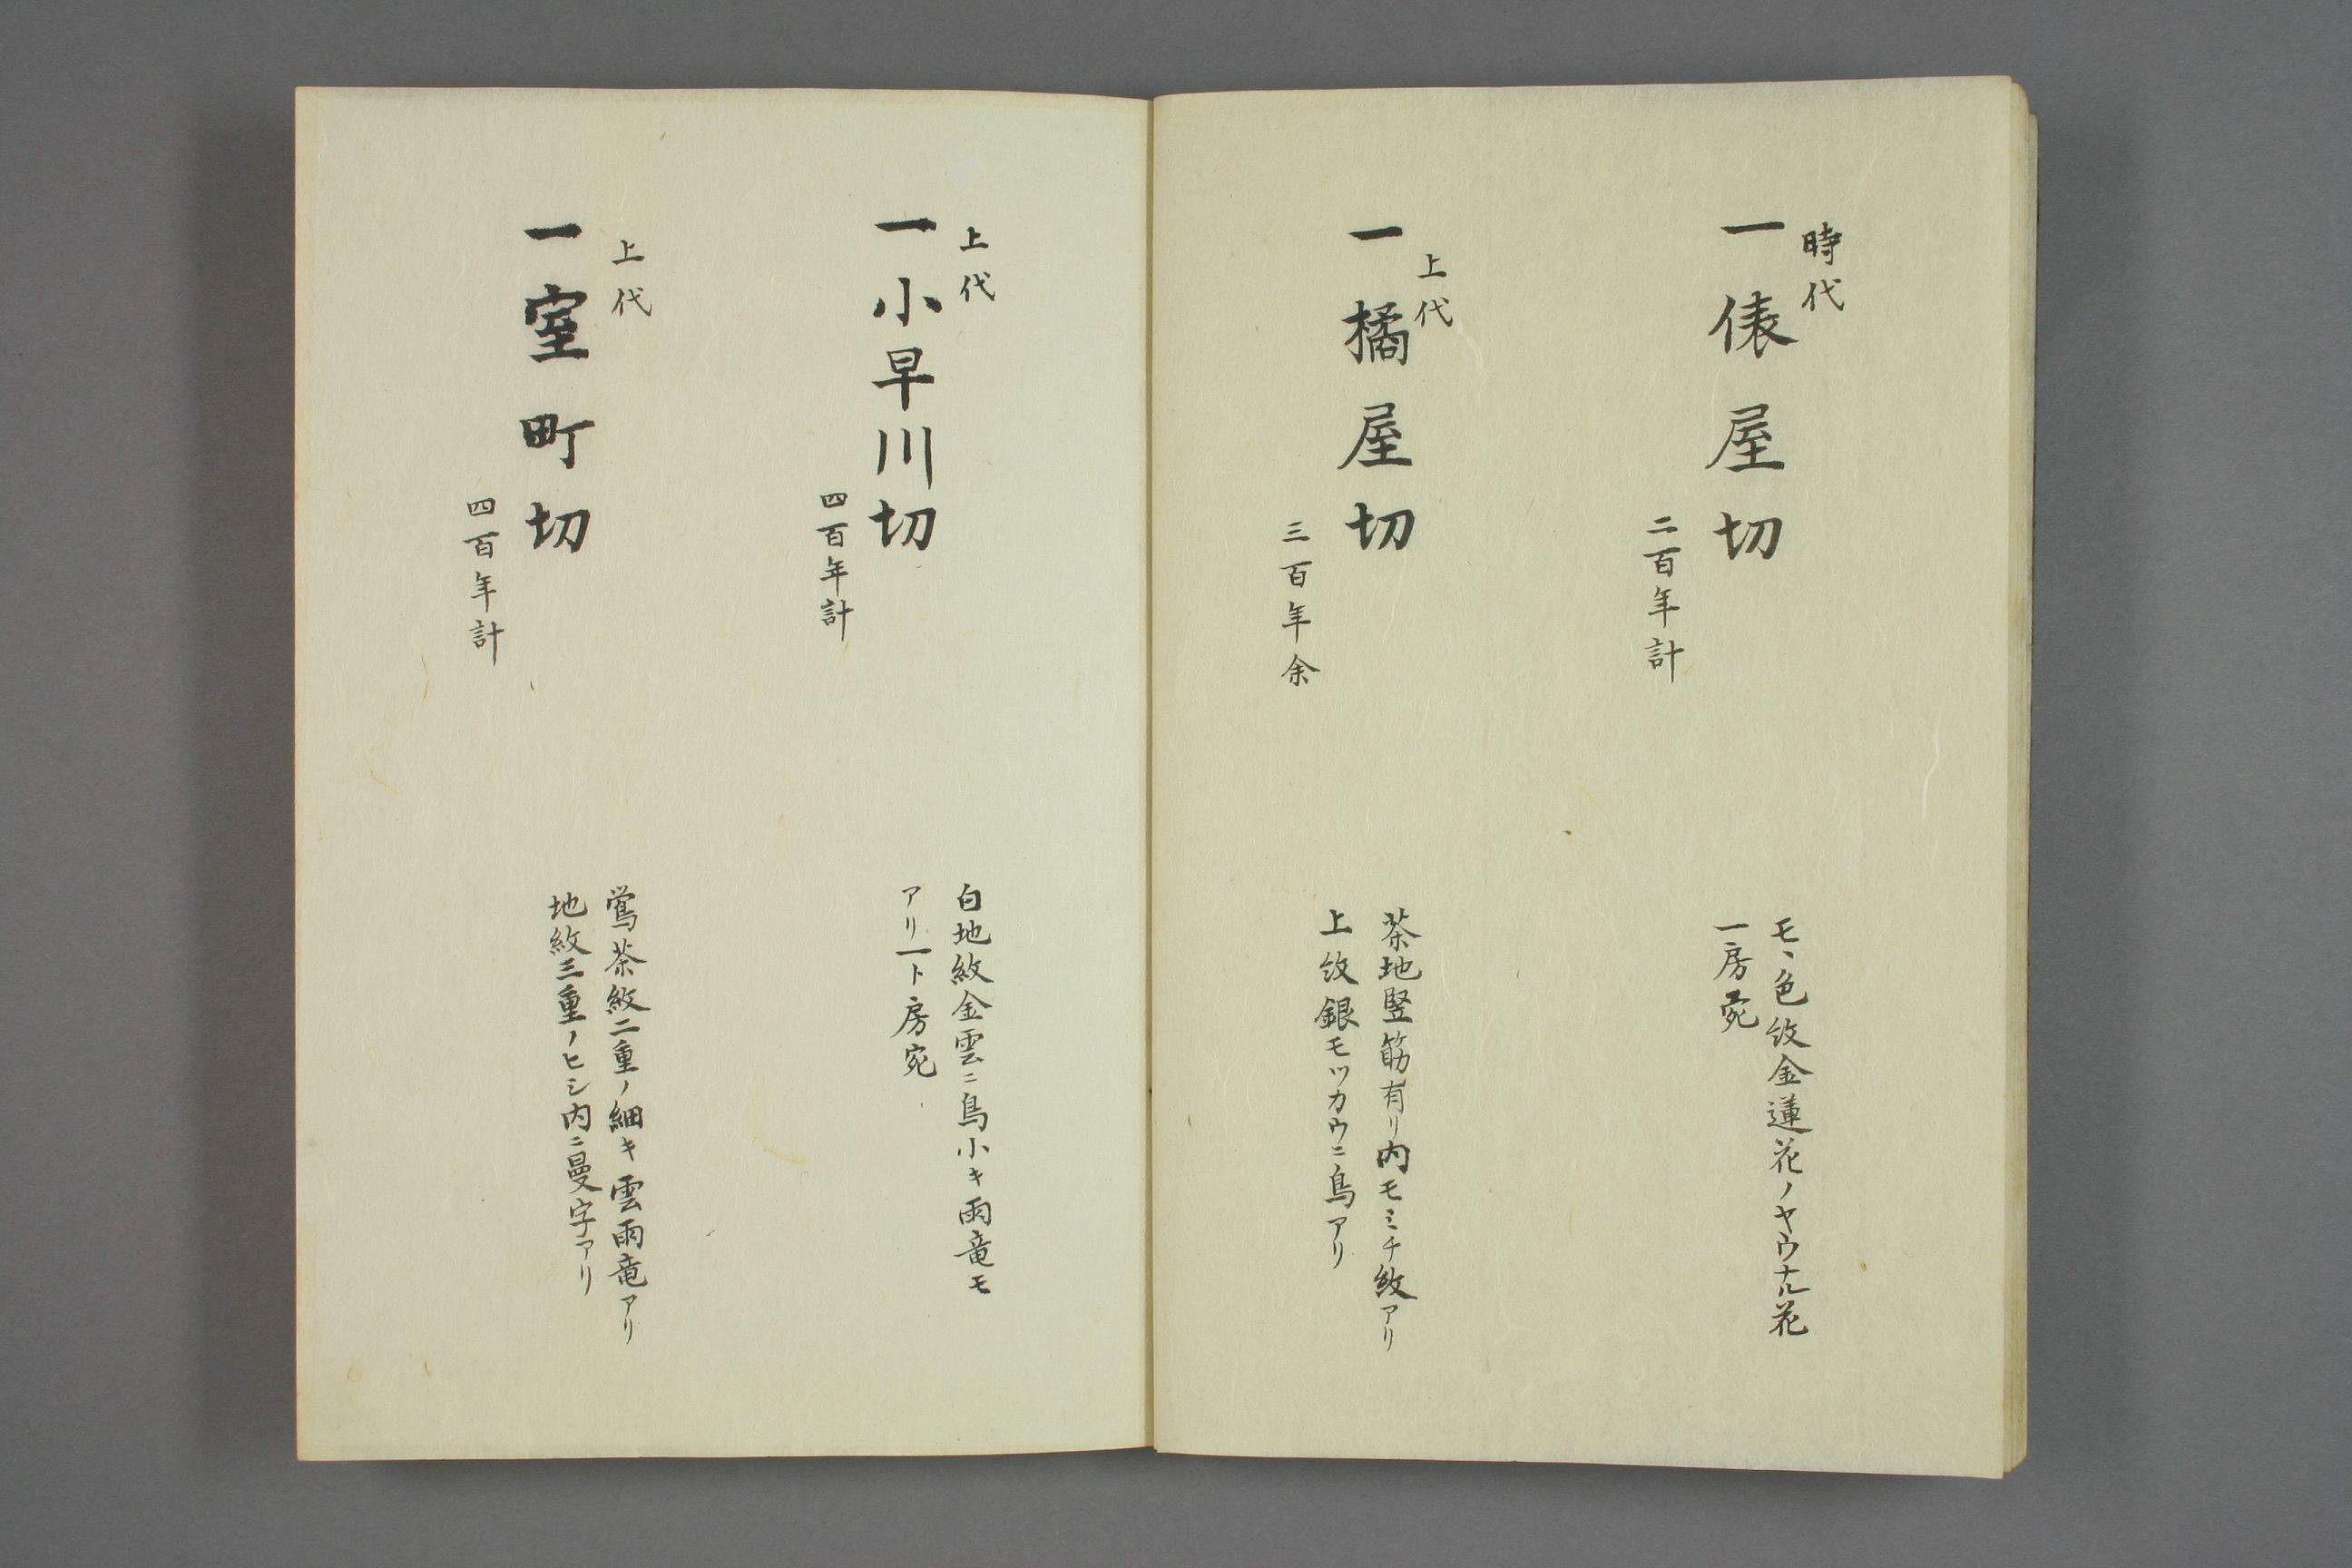 時代
一俵屋切
二百年計
モヽ色紋金蓮花ノヤウナル花
一房宛
上代
一橘屋切
三百年余
茶地竪筋有リ内モミチ紋アリ
上紋銀モツカウニ鳥アリ
上代
一小早川切
四百年計
白地紋金雲ニ鳥小キ雨竜モ
アリ一ト房宛
上代
一室町切
四百年計
鴬茶紋二重ノ細キ雲雨竜アリ
地紋三重ノヒシ内ニ曼字アリ